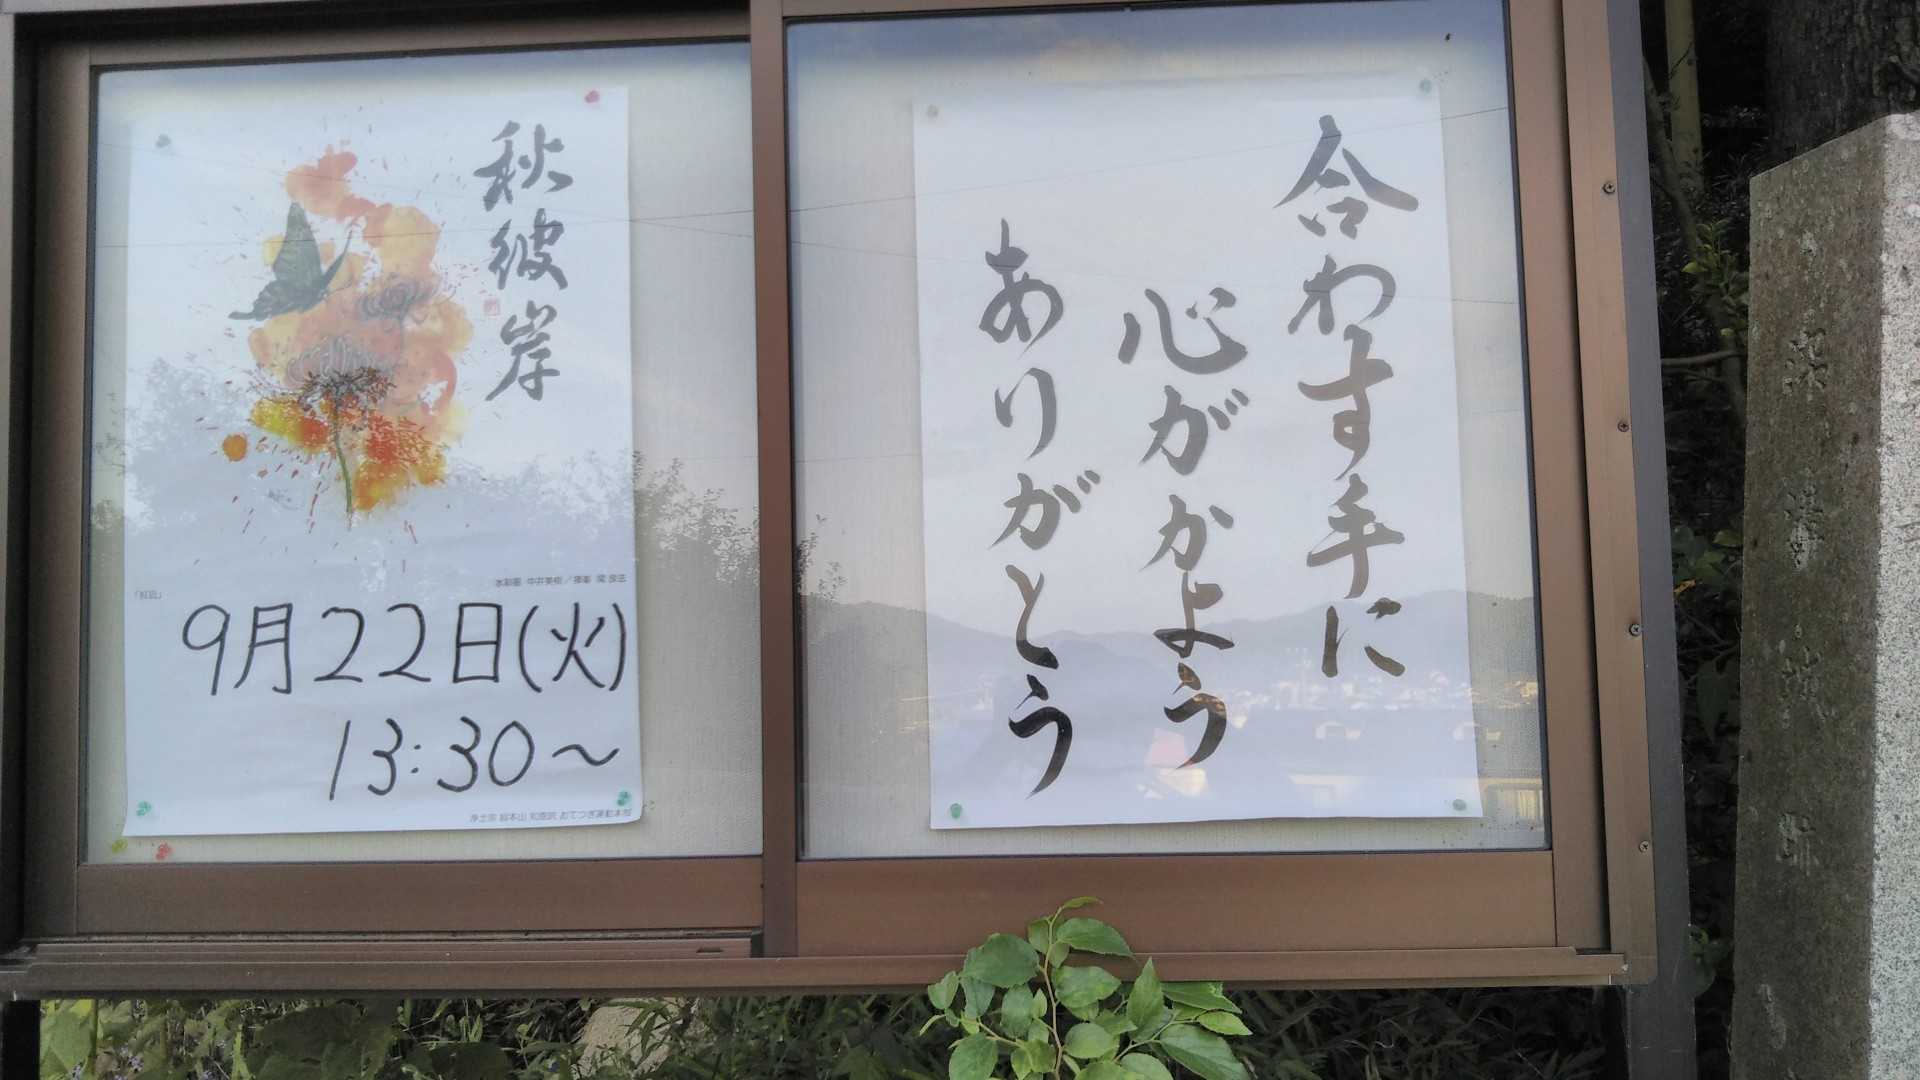 合わす手に
心がかよう
ありがとう
秋彼岸
「紅凪」
水彩画 中井美樹／揮毫 關 良法
9月22日(火)
13:30〜
浄土宗 総本山 知恩院 おてつぎ運動本部